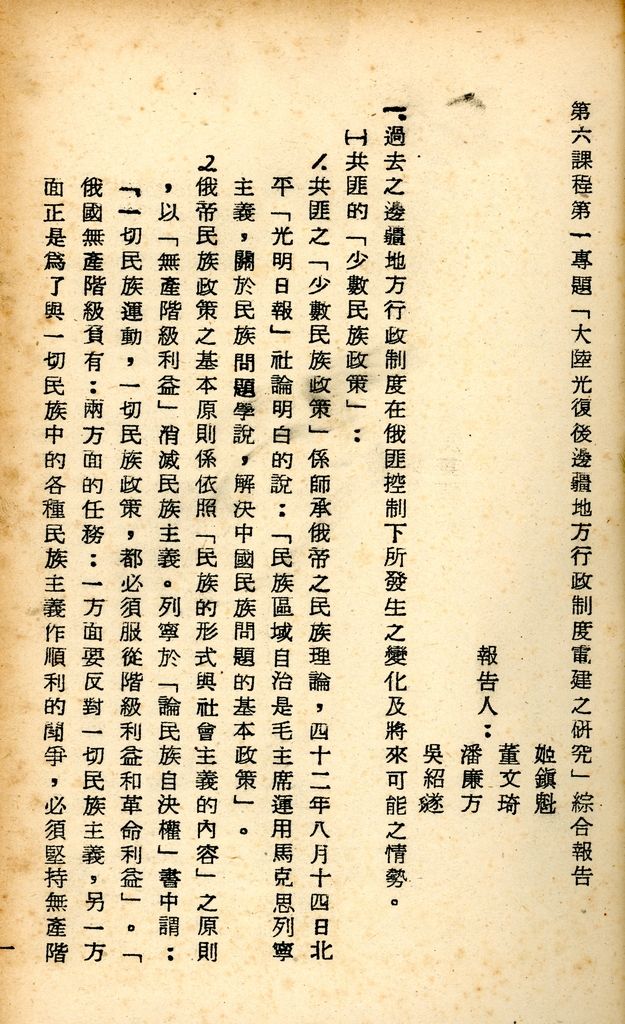 第六課程第一專題「大陸光復後邊疆地方行政制度重建之研究」綜合報告
報告人：
姬鎮魁
董文琦
潘廉方
吳紹璲
一、過去之邊疆地方行政制度在俄匪控制下所發生之變化及將來可能之情勢。
㈠共匪的「少數民族政策」：
1.共匪之「少數民族政策」係師承俄帝之民族理論，四十二年八月十四日北
平「光明日報」社論明白的說：「民族區域自治是毛主席運用馬克思列寧
主義，關於民族問題學說，解決中國民族問題的基本政策」。
2.俄帝民族政策之基本原則係依照「民族的形式與社會主義的內容」之原則
，以「無產階級利益」消滅民族主義。列寧於「論民族自決權」書中謂：
「一切民族運動，一切民族政策，都必須服從階級利益和革命利益」。「
俄國無產階級負有：兩方面的任務：一方面要反對一切民族主義，另一方
面正是為了與一切民族中的各種民族主義作順利的鬭爭，必須堅持無產階
一